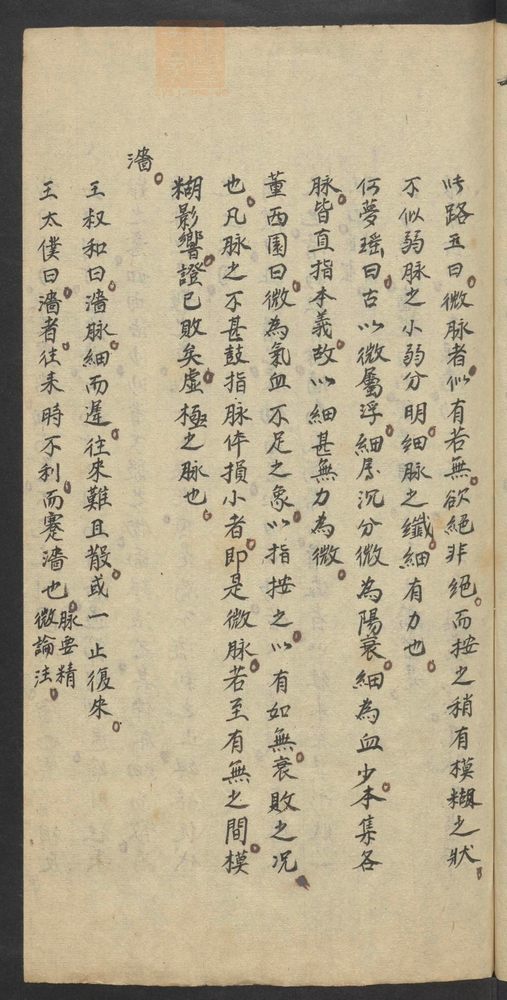 路玉曰微脉者似有若無欲絕非絕而按之稍有模糊之狀
不似弱脉之小弱分明細脉之纖細有力也
何夢瑶曰古以微屬浮細屬沉分微為陽衰細為血少本集各
脉皆直指本義故以細甚無力為微
董西園曰微為氣血不足之象以指按之似有如無衰敗之况
也凡脉之不甚鼓指脉体損小者即是微脉若至有無之間模
糊影響證已敗矣虛極之脉也
濇
王叔和曰濇脉細而遲往來難且散或一止復來
王太僕曰濇者往来時不利而蹇濇也脉要精
微論注